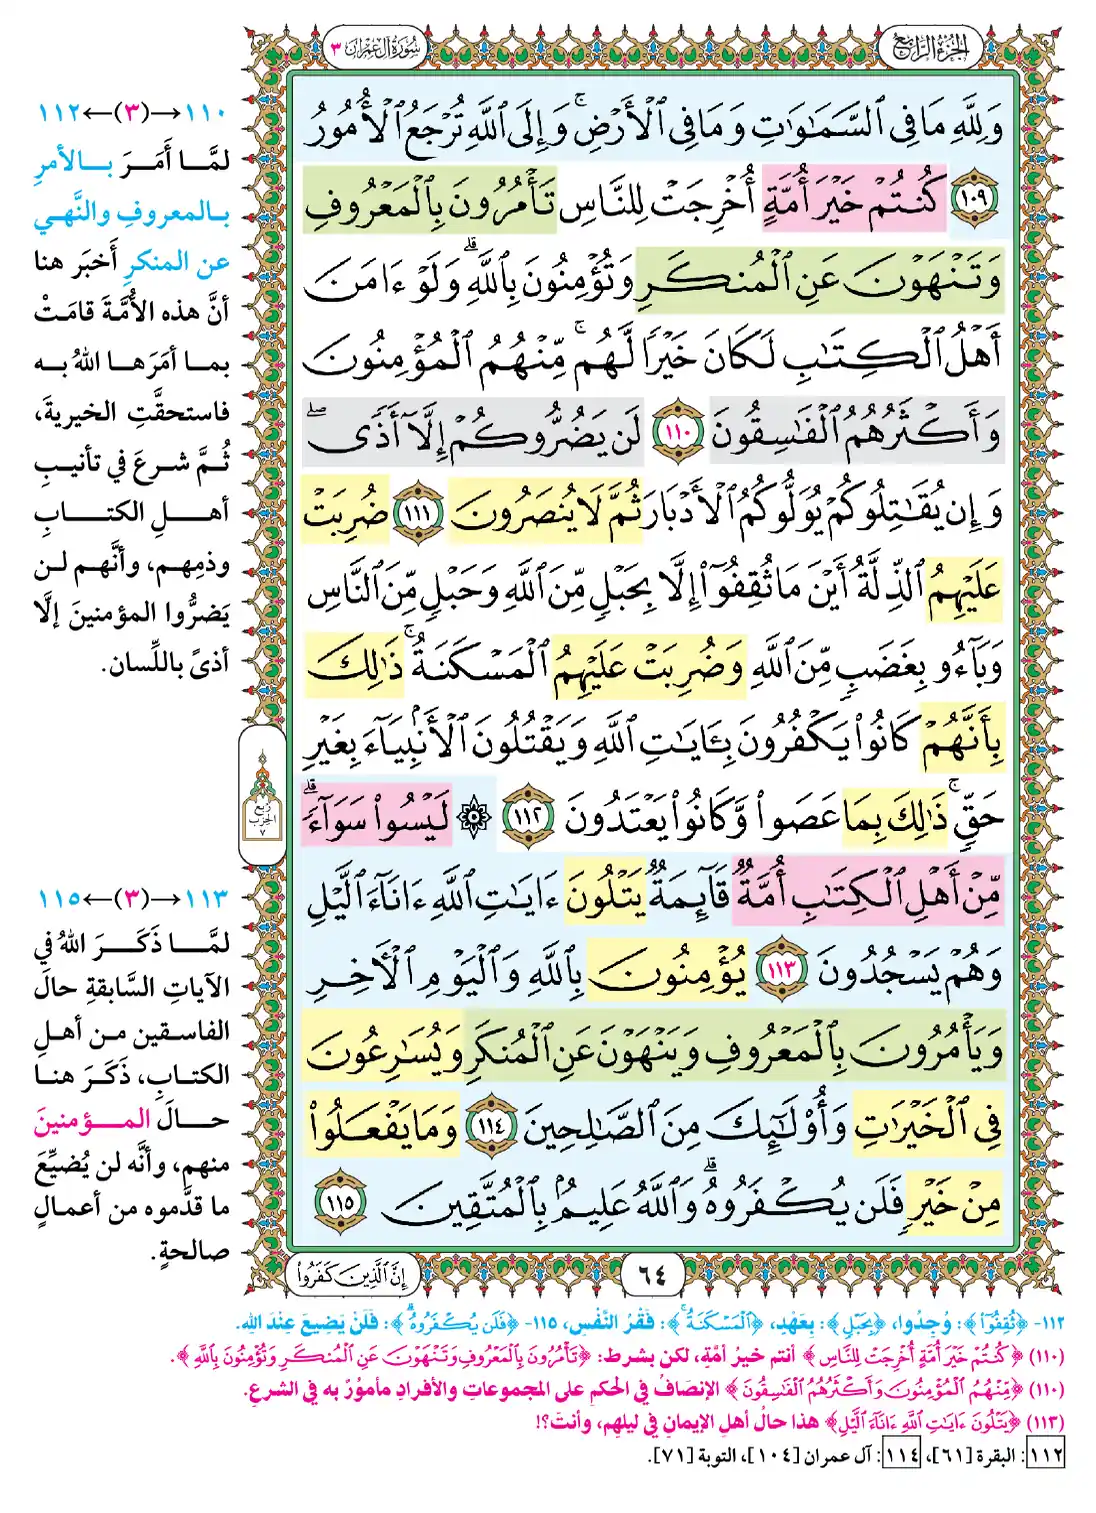 الجزء الرابع
سورة آل عمران ٣
وَلِلَّهِ مَا فِي ٱلسَّمَٰوَٰتِ وَمَا فِي ٱلْأَرْضِۚ وَإِلَى ٱللَّهِ تُرْجَعُ ٱلْأُمُورُ
١٠٩ كُنتُمْ خَيْرَ أُمَّةٍ أُخْرِجَتْ لِلنَّاسِ تَأْمُرُونَ بِٱلْمَعْرُوفِ
وَتَنْهَوْنَ عَنِ ٱلْمُنكَرِ وَتُؤْمِنُونَ بِٱللَّهِۗ وَلَوْ ءَامَنَ
أَهْلُ ٱلْكِتَٰبِ لَكَانَ خَيْرًا لَّهُمۚ مِّنْهُمُ ٱلْمُؤْمِنُونَ
وَأَكْثَرُهُمُ ٱلْفَٰسِقُونَ ١١٠ لَن يَضُرُّوكُمْ إِلَّآ أَذًىۖ
وَإِن يُقَٰتِلُوكُمْ يُوَلُّوكُمُ ٱلْأَدْبَارَ ثُمَّ لَا يُنصَرُونَ ١١١ ضُرِبَتْ
عَلَيْهِمُ ٱلذِّلَّةُ أَيْنَ مَا ثُقِفُوٓا۟ إِلَّا بِحَبْلٍ مِّنَ ٱللَّهِ وَحَبْلٍ مِّنَ ٱلنَّاسِ
وَبَآءُو بِغَضَبٍ مِّنَ ٱللَّهِ وَضُرِبَتْ عَلَيْهِمُ ٱلْمَسْكَنَةُۚ ذَٰلِكَ
بِأَنَّهُمْ كَانُوا۟ يَكْفُرُونَ بِـَٔايَٰتِ ٱللَّهِ وَيَقْتُلُونَ ٱلْأَنۢبِيَآءَ بِغَيْرِ
حَقٍّۚ ذَٰلِكَ بِمَا عَصَوا۟ وَّكَانُوا۟ يَعْتَدُونَ ١١٢ ۞ لَيْسُوا۟ سَوَآءًۗ
مِّنْ أَهْلِ ٱلْكِتَٰبِ أُمَّةٌ قَآئِمَةٌ يَتْلُونَ ءَايَٰتِ ٱللَّهِ ءَانَآءَ ٱلَّيْلِ
وَهُمْ يَسْجُدُونَ ١١٣ يُؤْمِنُونَ بِٱللَّهِ وَٱلْيَوْمِ ٱلْأٓخِرِ
وَيَأْمُرُونَ بِٱلْمَعْرُوفِ وَيَنْهَوْنَ عَنِ ٱلْمُنكَرِ وَيُسَٰرِعُونَ
فِي ٱلْخَيْرَٰتِ وَأُو۟لَٰٓئِكَ مِنَ ٱلصَّٰلِحِينَ ١١٤ وَمَا يَفْعَلُوا۟
مِنْ خَيْرٍ فَلَن يُكْفَرُوهُۗ وَٱللَّهُ عَلِيمٌۢ بِٱلْمُتَّقِينَ ١١٥
٦٤
إِنَّ ٱلَّذِينَ كَفَرُوا۟
ربع
الحزب
٧
١١٠→(٣)←١١٢
لمَّا أَمَرَ بالأمرِ
بالمعروفِ والنَّهي
عن المنكرِ أَخبَر هنا
أنَّ هذه الأمَّةَ قامَتْ
بما أمَرَها اللهُ به
فاستحقَّتِ الخيريةَ،
ثُمَّ شرعَ في تأنيبِ
أهلِ الكتابِ
وذمِهم، وأنَّهم لن
يَضرُّوا المؤمنينَ إلَّا
أذىً باللِّسان.
١١٣→(٣)←١١٥
لمَّا ذَكَرَ اللهُ في
الآياتِ السَّابقةِ حالَ
الفاسقين من أهلِ
الكتابِ، ذَكَرَ هنا
حالَ المؤمنينَ
منهم، وأنَّه لن يُضيِّعَ
ما قدَّموه من أعمالٍ
صالحةٍ.
١١٢- ﴿ثُقِفُوٓا۟﴾: وُجِدُوا، ﴿بِحَبْلٍ﴾: بِعَهْدٍ، ﴿ٱلْمَسْكَنَةُۚ﴾: فَقْرُ النَّفْسِ، ١١٥- ﴿فَلَن يُكْفَرُوهُۗ﴾: فَلَنْ يَضِيعَ عِنْدَ اللهِ.
(١١٠) ﴿كُنتُمْ خَيْرَ أُمَّةٍ أُخْرِجَتْ لِلنَّاسِ﴾ أنتم خيرُ أمَّةٍ، لكن بشرط: ﴿تَأْمُرُونَ بِٱلْمَعْرُوفِ وَتَنْهَوْنَ عَنِ ٱلْمُنكَرِ وَتُؤْمِنُونَ بِٱللَّهِ﴾.
(١١٠) ﴿مِّنْهُمُ ٱلْمُؤْمِنُونَ وَأَكْثَرُهُمُ ٱلْفَٰسِقُونَ﴾ الإنصَافُ في الحكمِ على المجموعاتِ والأفرادِ مأمورٌ به في الشرعِ.
(١١٣) ﴿يَتْلُونَ ءَايَٰتِ ٱللَّهِ ءَانَآءَ ٱلَّيْلِ﴾ هذا حالُ أهلِ الإيمانِ في ليلِهم، وأنتَ؟!
١١٢: البقرة [٦١]، ١١٤: آل عمران [١٠٤]، التوبة [٧١].